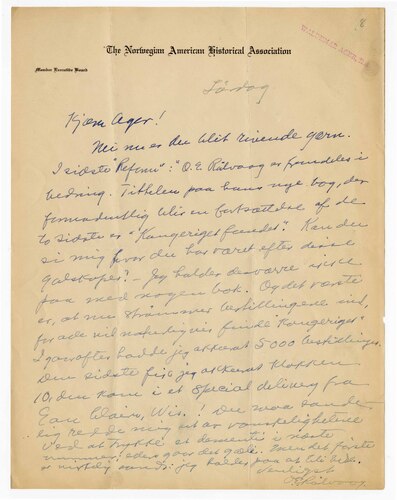 8
WALDEMAR AGER
The Norwegian American Historical Association
Member Executive Board
Lördag
Kjære Ager!
Nei nu er du blit rivende gern.
I sidste "Reform": "O. E. Rölvaag er fremdeles i
bedring. Titelen paa hans nye bog, der
formodentlig blir en fortsættelse af de
to sidste er "Kongeriget funnet". Kan du
si mig hvor du har været efter disse
galskaper? - Jeg holder desværre ikke
paa med nogen bok. Og det værste
er, at nu strömmer bestillingene ind,
for alle vil naturligvis finde Kongeriget.
Igaar aftes hadde jeg akkurat 5000 bestillinger.
Den sidste fik jeg akkurat klokken
10, den kom i et Special delivery fra
Eau Claire, Wis.! Du maa
mig ut av vanskelighetene
ved at trykke et dementi i næste
nummer, ellers gaar det galt. Men det förste
er virkelig sandt: jeg holder paa at bli bedre.
Venligst
O E Rölvaag